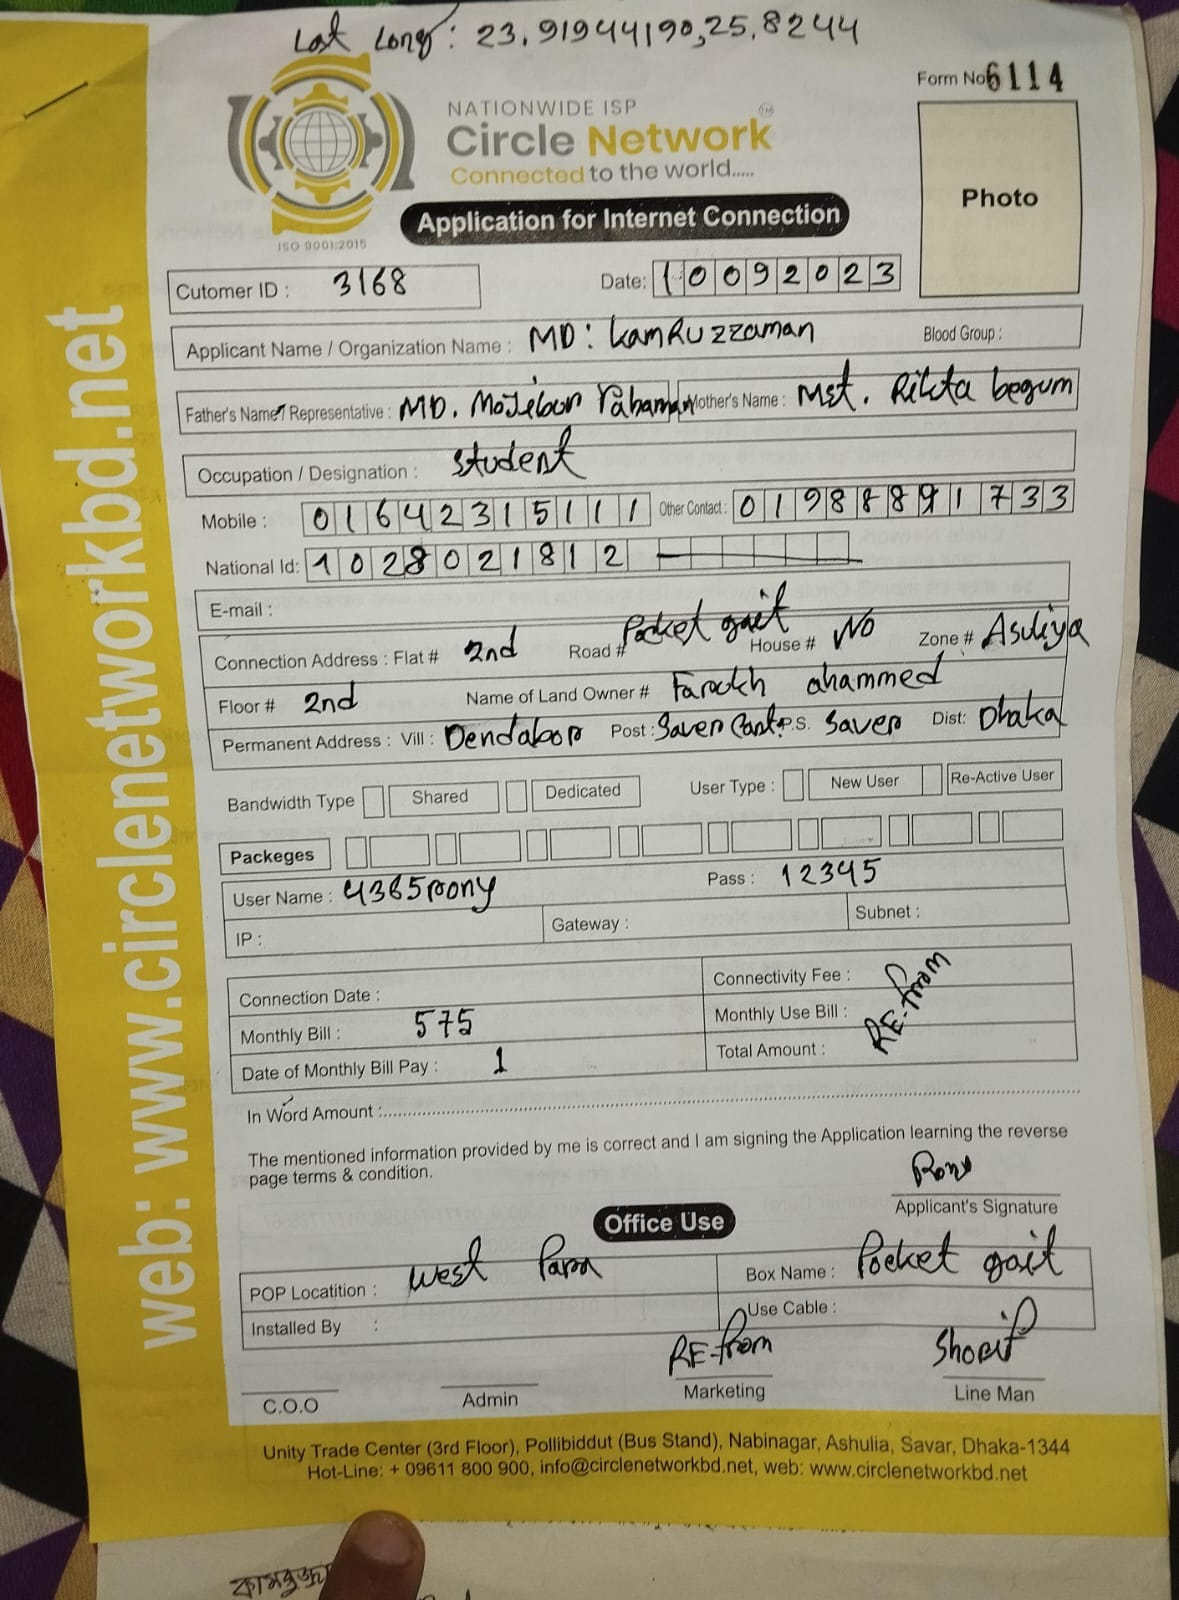 Lat Long: 23.91944190,25.8244
Form No 6114
NATIONWIDE ISP
Circle Network
TM
Connected to the world.....
ISO 9001:2015
Photo
Application for Internet Connection
Cutomer ID : 3168 Date: 10092023
Applicant Name / Organization Name : MD: kamRuzzaman Blood Group :
Father's Name / Representative : MD. Mojebor rahaman Mother's Name : Mst. Rikta begum
Occupation / Designation : student
Mobile : 01642315111 Other Contact : 01988891733
National Id: 1028021812
E-mail :
Connection Address : Flat # 2nd Road # Pocket gait House # No Zone # Asuliya
Floor # 2nd Name of Land Owner # Farookh ahammed
Permanent Address : Vill : Dendabor Post : Saver Cant. P.S. Saver Dist: Dhaka
Bandwidth Type Shared Dedicated User Type : New User Re-Active User
Packeges
User Name : 4365rony Pass : 12345
IP : Gateway : Subnet :
Connection Date : Connectivity Fee :
Monthly Bill : 575 Monthly Use Bill : RE-from
Date of Monthly Bill Pay : 1 Total Amount :
In Word Amount :
The mentioned information provided by me is correct and I am signing the Application learning the reverse
page terms & condition.
Rony
Applicant's Signature
Office Use
POP Locatition : West Para Box Name : Pocket gait
Installed By : Use Cable :
RE-from Shorif
C.O.O Admin Marketing Line Man
Unity Trade Center (3rd Floor), Pollibiddut (Bus Stand), Nabinagar, Ashulia, Savar, Dhaka-1344
Hot-Line: + 09611 800 900, info@circlenetworkbd.net, web: www.circlenetworkbd.net
web: www.circlenetworkbd.net